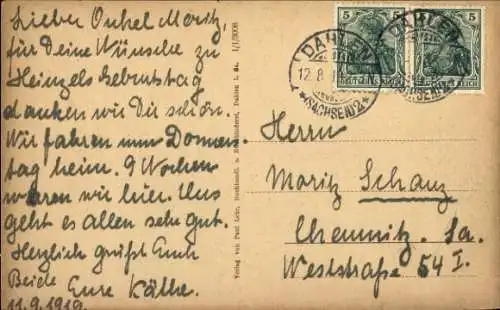 Lieber Onkel Moritz,
für Deine Wünsche zu
Heinzels Geburtstag
danken wir Dir schön.
Wir fahren nun Donners-
tag heim. 9 Wochen
waren wir hier. Uns
geht es allen sehr gut.
Herzlich grüßt Euch
Beide Eure Käthe.
11.9.1919.
Verlag von Paul Lehr, Buchhandl. u. Buchbinderei, Dahlen i. Sa.
DAHLEN
12.8.
*(SACHSEN)2*
5 5
DEUTSCHES REICH
DAHLEN
(SACHSEN)2
5 5
DEUTSCHES REICH
Herrn
Moritz Schanz
Chemnitz. Sa.
Weststraße 54 I.